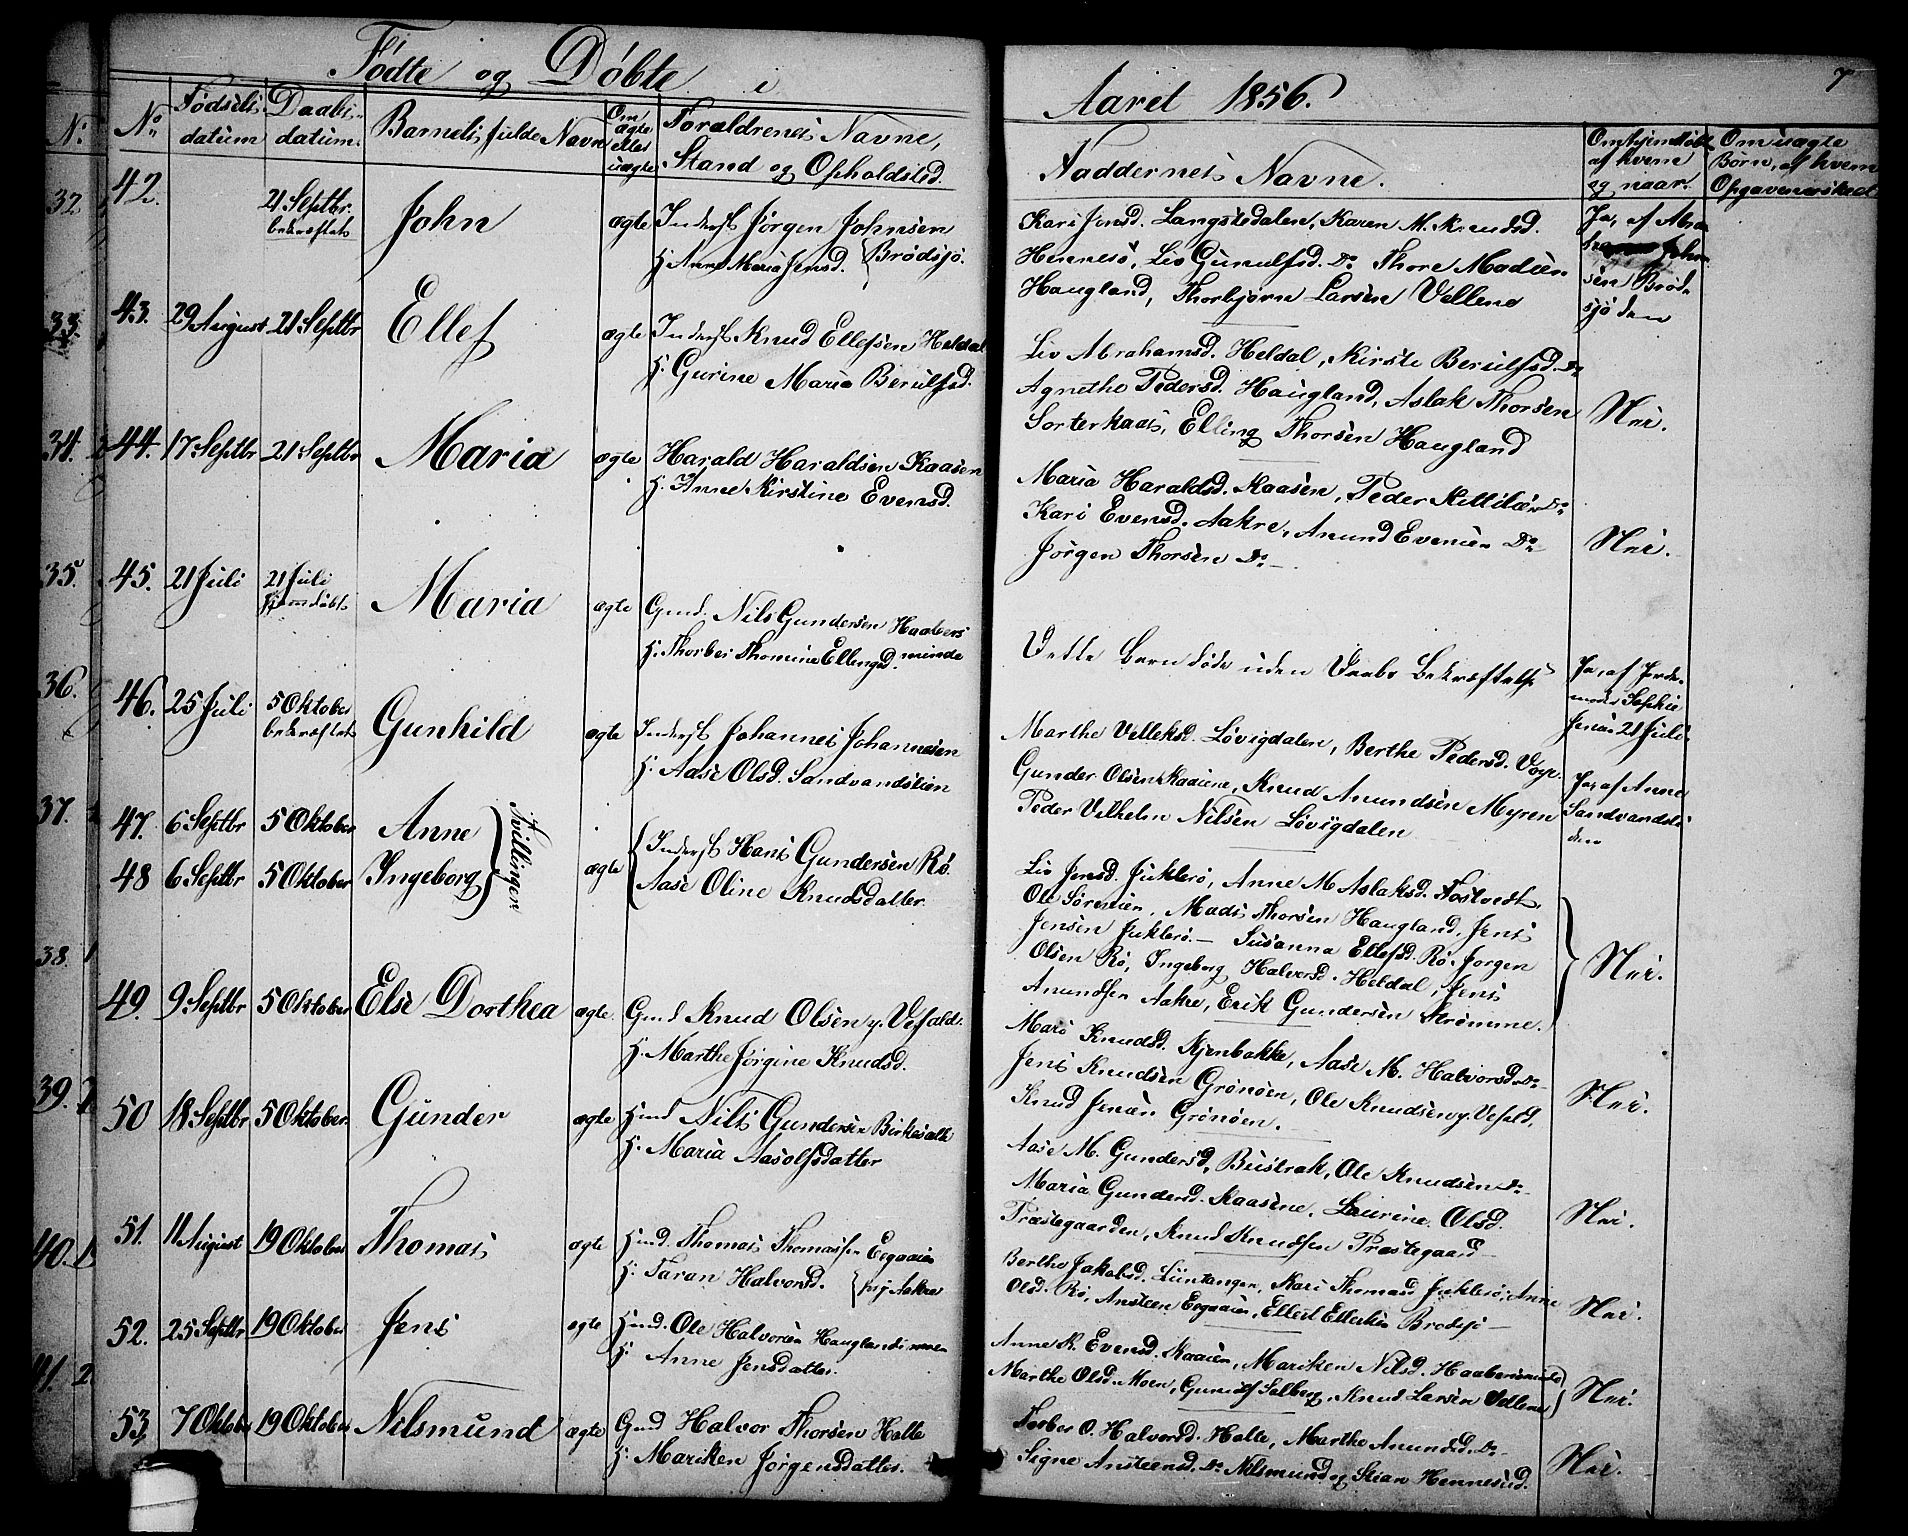 Fødte og Døbte i
Aaret 1856.
7
No
No
Fødsels-
datum
Daabs-
datum.
Barnets fulde Navn
Om
ægte
eller
uægte
Forældrenes Navne,
Stand og Opholdsted.
Faddernes Navne.
Om hjemdøbt
af hvem
og naar.
Om uægte
Børn, af hvem
Opgaven er skeet
32.
33.
34.
35.
36.
37.
38.
39.
40.
41.
42.
21 Septbr.
bekræftet
John
ægte
Inderst Jørgen Johnsen
H. Anne Maria Jensd. Brødsjø.
Kari Jensd. Langstedalen, Karen M. Knudsd.
Hennesø, Liv Gunulfsd. Do Thore Madsen
Haugland, Thorbjørn Larsen Vellene
Ja, af Abra
John
sen Brød-
sjøden
43.
29 August
21 Septbr
Ellef
ægte
Inderst Knud Ellefsen Heldal
H. Gurine Maria Berulfsd.
Liv Abrahamsd. Heldal, Kirste Berulfsd. Do
Agnethe Pedersd. Haugland, Aslak Thorsen
Sorterkaas, Elling Thorsen Haugland
Nei.
44.
17 Septbr
21 Septbr
Maria
ægte
Harald Haraldsen Kaasen
H. Anne Kirstine Evensd.
Maria Haraldsd. Kaasen, Peder Kittilsen Do
Kari Evensd. Aakre, Amund Evensen Do
Jørgen Thorsen Do
Nei.
45.
21 Juli
21 Juli
hjemdøbt
Maria
ægte
Gmd. Nils Gundersen Haabers
H. Thorber Thomine Ellingsd. minde
Dette Barn døde uden Daabs Bekræftelse
Ja, af Jorde-
moder Sophie
Jensen 21 Juli.
46.
25 Juli
5 Oktober
bekræftet
Gunhild
ægte
Inderst Johannes Johannesen
H. Aase Olsd. Sandvandslien
Marthe Velleksd. Løvigdalen, Berthe Pedersd.
Gunder Olsen Kaasene, Knud Amundsen Myren
Peder Vilhelm Nilsen Løvigdalen
Ja, af Anne
Sandvandsli
den
47.
6 Septbr
5 Oktober
Anne
Tvillinger
ægte
Inderst Hans Gundersen Rø.
48
6 Septbr
5 Oktober
Ingeborg
Aase Oline Knudsdatter
Liv Jensd. Juklerø, Anne M. Aslaksd. Tostvedt,
Ole Sørensen, Mads Thorsen Haugland, Jens
Jensen Juklerø. — Susanna Ellefsd. Rø. Jørgen
Olsen Rø, Ingeborg Halvorsd. Heldal, Jens
Amundsen Aakre, Erik Gundersen Strømme.
Nei.
49.
9 Septbr
5 Oktober
Else Dorthea
ægte
Gmd Knud Olsen y. Vefald.
H. Marthe Jørgine Knudsd.
Mari Knudsd. Kjenbakke, Aase M. Halvorsd. Do
Jens Knudsen Grønøen, Ole Knudsen y. Vefald,
Knud Jensen Grønøen.
Nei.
50
18 Septbr
5 Oktober
Gunder
ægte
Hmd Nils Gundersen
H. Maria Aasolfsdatter
Aase M. Gundersd, Bustrak, Ole Knudsen Do
Maria Gundersd. Kaasene, Laurine Olsd.
Præstegaarden, Knud Knudsen Præstegaard
Nei.
51.
11 August
19 Oktober
Thomas
ægte
Hmd. Thomas Thomassen
H. Taran Halvorsd.
Berthe Jakobsd. Lüntangen, Kari Thomasd Juklerø, Anne
Olsd. Rø, Ansteen
Nei.
52.
25 Septbr
19 Oktober
Jens
ægte
Hmd. Ole Halvorsen Hauglandsmoen
H. Anne Jensdatter.
Anne K. Evensd. Kaasen, Mariken Nilsd. Haabersminde
Marthe Olsd. Moen, Gunulf Solberg, Knud Larsen Vellene
Nei.
53,
7 Oktober
19 Oktober
Nilsmund
ægte
Gmd Halvor Thorsen Holte
H. Mariken Jørgensdatter.
Torber O. Halvorsd. Holte, Marthe Amundsd. Do
Signe Ansteensd. Do Nilsmund og Stian Hennesød.
Nei.